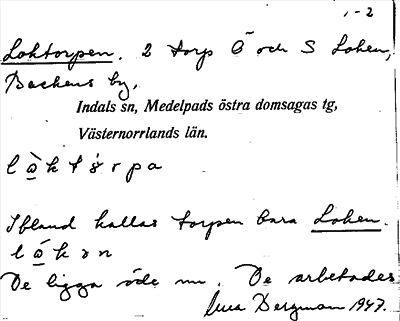 1-2
Loktorpen. 2 torp Ö och S Loken,
Backens by,
Indals sn, Medelpads östra domsagas tg,
Västernorrlands län.
Ibland kallas torpen bara Loken.
De ligga öde nu. De arbetades
Bergman 1947.